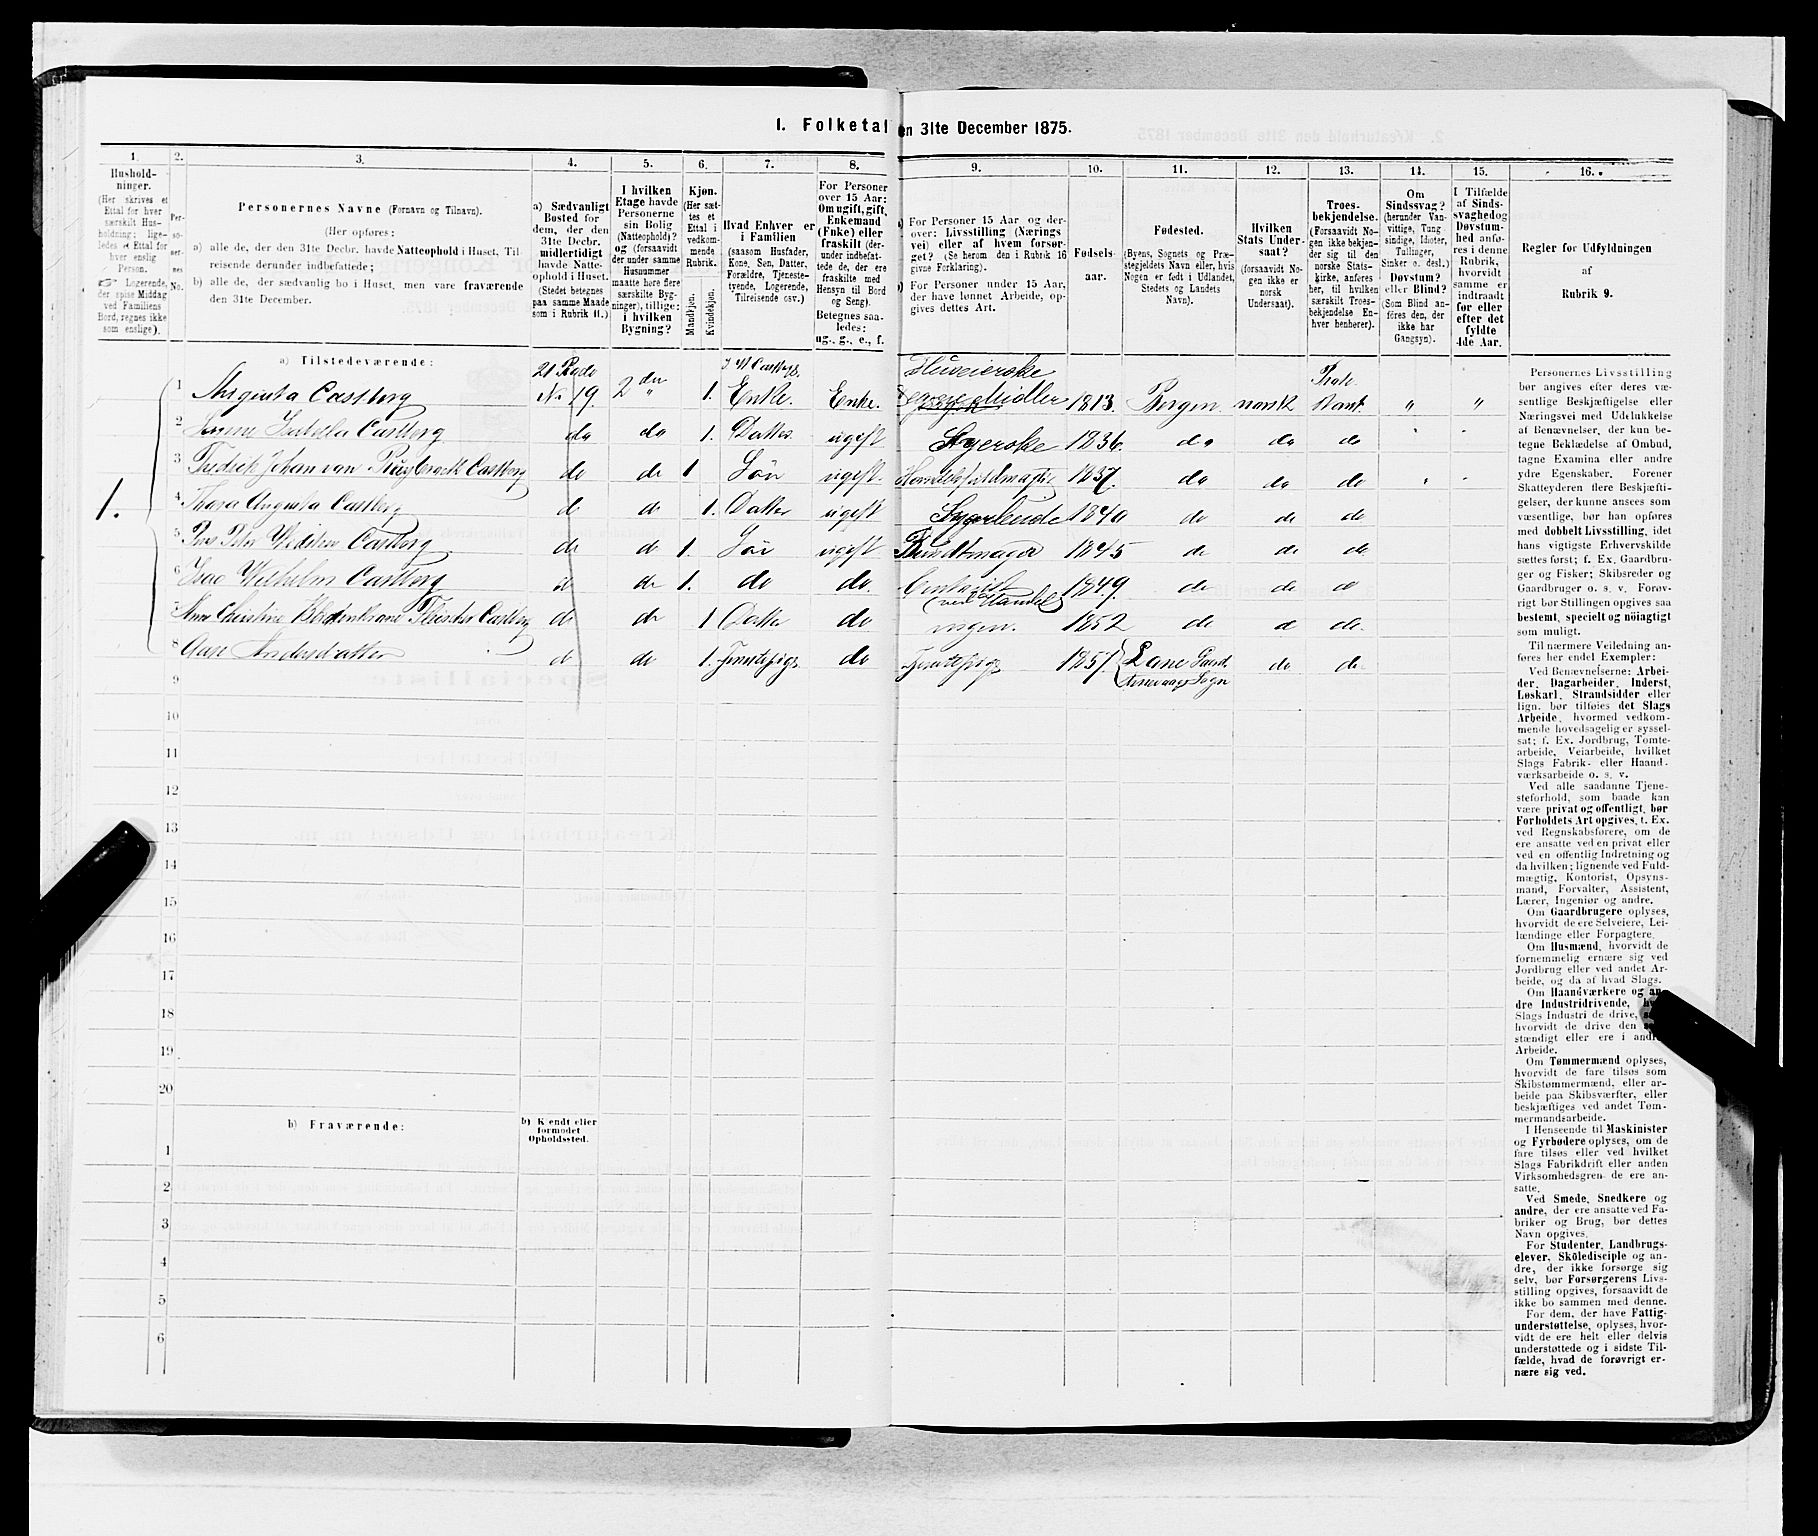 1. Folketal den 31te December 1875.
1.
Husholdninger.
(Her skrives et Ettal for hver særskilt Husholdning; ligeledes et Ettal for hver enslig Person.
Logerende, der spise Middag ved Familiens Bord, regnes ikke som enslige).
2.
Personernes No.
3.
Personernes Navne (Fornavn og Tilnavn).
(Her opføres:
a) alle de, der den 31te Decbr. havde Natteophold i Huset, Tilreisende derunder indbefattede;
b) alle de, der sædvanlig bo i Huset, men vare fraværende den 31te December.
4.
a) Sædvanligt Bosted for dem, der den 31te Decbr. midlertidigt havde Natteophold i Huset.
(Stedet betegnes paa samme Maade som i Rubrik 11.)
5.
I hvilken Etage havde Personerne sin Bolig (Natteophold)?
og (forsaavidt der under samme Husnummer maatte høre flere særskilte Bygninger), tillige:
i hvilken Bygning?
6.
Kjøn.
(Her sættes et Ettal i vedkommende Rubrik.
Mandkjøn.
Kvindekjøn.
7.
Hvad Enhver er i Familien
(saasom Husfader, Kone, Søn, Datter, Forældre, Tjenestetyende, Logerende, Tilreisende osv.)
8.
For Personer over 15 Aar: Om ugift, gift, Enkemand (Enke) eller fraskilt (derunder indbefattede de, der ere fraskilte med Hensyn til Bord og Seng).
Betegnes saaledes:
ug., g., e., f.
9.
For Personer 15 Aar og derover: Livsstilling (Næringsvei) eller af hvem forsørget? (Se herom den i Rubrik 16 givne Forklaring).
For Personer under 15 Aar, der have lønnet Arbeide, opgives dettes Art.
10.
Fødselsaar.
11.
Fødested.
(Byens, Sognets og Præstegjeldets Navn eller, hvis Nogen er født i Udlandet, Stedets og Landets Navn).
12.
Hvilken Stats Undersaat?
(forsaavidt Nogen ikke er norsk Undersaat).
13.
Troesbekjendelse.
(Forsaavidt Nogen ikke bekjender sig til den norske Statskirke, anføres her, til hvilken særskilt Troesbekjendelse Enhver henhører).
14.
Om Sindssvag?
(herunder Vanvittige, Tungsindige, Idioter, Tullinger, Sinker o. desl.)
Døvstum?
eller Blind?
(Som Blind anføres den, der ikke har Gangsyn).
15.
I Tilfælde af Sindssvaghed og Døvstumhed anføres i denne Rubrik, hvorvidt samme er indtraadt før eller efter det fyldte 4de Aar.
16.
Regler for Udfyldningen
af
Rubrik 9.
a) Tilstedeværende:
1 Augusta Castberg 21 Rode No 19. 2den 1. J M Castbergs. Enke. Enke. Huseierske egne Midler 1813. Bergen norsk Stats " "
2 Isabella Castberg do do 1. Datter ugift Syerske 1836. do do do
3 Fredrik Johan van Castberg do do 1 Søn ugift. 1837. do do do
1.
4 Thora Augusta Castberg do do 1. Datter ugift 1840 do do do
5 Castberg do do 1. Søn ugift Bundtmager 1845 do do do
6 Isac Wilhelm Castberg do do 1. do do. Contorist ved Handel 1849. do do do
7 Christine Fleischer Castberg do do 1 Datter do ingen. 1852 do do do.
8 Andersdatter do do 1. do 1851. Sogn do do
9
10
11
12
13
14
15
16
17
18
19
20
b) Fraværende:
b) Kjendt eller formodet Opholdssted.
1
2
3
4
5
6
Personernes Livsstilling
bør angives efter deres væ-
sentlige Beskjæftigelse eller
Næringsvei med Udelukkelse
af Benævnelser, der kun be-
tegne Beklædelse af Ombud,
tagne Examina eller andre
ydre Egenskaber. Forener
Skatteyderen flere Beskjæfti-
gelser, der kunne ansees som
væsentlige, bør han opføres
med dobbelt Livsstilling, idet
hans vigtigste Erhvervskilde
sættes først; f. Ex. Gaardbru-
ger og Fisker; Skibsreder og
Gaardbruger o. s. v. Forøv-
rigt bør Stillingen opgives saa
bestemt, specielt og nöiagtigt
som muligt.
Til nærmere Veiledning an-
føres her endel Exempler:
Ved Benævnelserne: Arbei-
der, Dagarbeider, Inderst,
Løskarl, Strandsidder eller
lign. bør tilføies det Slags
Arbeide, hvormed vedkom-
mende hovedsagelig er syssel-
sat; f. Ex. Jordbrug, Tomte-
arbeide, Veiarbeide, hvilket
Slags Fabrik- eller Haand-
værksarbeide o. s. v.
Ved alle saadanne Tjene-
steforhold, som baade kan
være privat og offentligt, bør
Forholdets Art opgives, t. Ex.
ved Regnskabsførere, om de
ere ansatte ved en privat eller
ved en offentlig Indretning og
da hvilken; lignende ved Fuld-
mægtig, Kontorist, Opsyns-
mand, Forvalter, Assistent,
Lærer, Ingeniør og andre.
Om Gaardbrugere oplyses,
hvorvidt de ere Selveiere, Lei-
lændinge eller Forpagtere.
Om Husmænd, hvorvidt de
fornemmelig ernære sig ved
Jordbrug eller ved andet Ar-
beide, og da af hvad Slags.
Om Haandværkere og an-
dre Industridrivende,
Slags Industri de drive,
hvorvidt de drive den
stændigt eller ere i
Arbeide.
Om Tømmermænd oplyses,
hvorvidt de fare tilsøs som
Skibstømmermænd, eller ar-
beide paa Skibsværfter, eller
beskjæftiges ved andet Tøm-
mermandsarbeide.
I Henseende til Maskinister
og Fyrbødere oplyses, om de
fare tilsøs eller ved hvilket
Slags Fabrikdrift eller anden
Virksomhedsgren de ere an-
satte.
Ved Smede, Snedkere og
andre, der ere ansatte ved Fa-
briker og Brug, bør dettes
Navn opgives.
For Studenter, Landbrugs-
elever, Skoledisciple og an-
dre, der ikke forsørge sig
selv, bør Forsørgerens Livs-
stilling opgives, forsaavidt de
ikke bo sammen med denne.
For dem, der have Fattig-
understøttelse, oplyses, hvor-
vidt de ere helt eller delvis
understøttede og i sidste Til-
fælde, hvad de forøvrigt er-
nære sig ved.